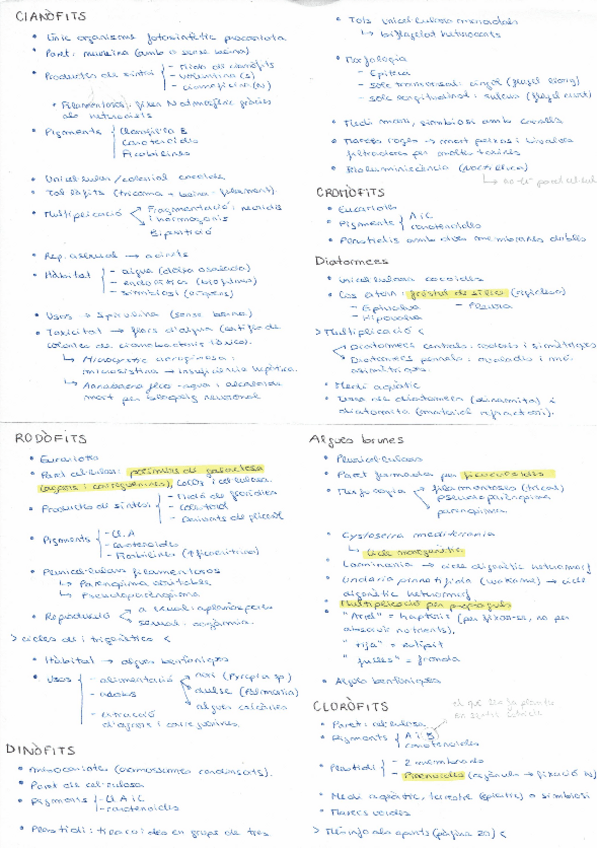 CIANÒFITS
• Únic organismes fotosintètic procariota
• Paret: mureïna (amb o sense beina)
• Productes de síntesi - Midó de cianòfits
- volutina (s)
- cianoficina (N)
• Filamentosos: fixen N atmosfèric gràcies
als heterocists
• Pigments - Clorofil·la
Carotenoides
Ficobilines
• Unicel·lulars/colonial cocoide
• Tal·lòfits (tricoma + beina = filament).
• Multiplicació Fragmentació:
i hormogonis
Bipartició
• Rep. asexual → acinets
• Hàbitat - aigua (dolça o salada)
- (biofilms)
- simbiosi (líquens)
• Usos → Spirulina (sense beina)
• Toxicitat → flors d'aigua
colònies de cianobacteris tòxics).
↳ Microcystis aeruginosa:
microcistina → insuficiència hepàtica.
↳ Anabaena flos-aquae:
mort per bloqueig neuronal
• Tots unicel·lulars monadals
↳ biflagel·lat heteroconts
• Morfologia
- Epiteca
- solc transversal: cíngol (flagel llarg)
- solc longitudinal: sulcus (flagel curt)
• Medi marí, simbiosi amb coralls
• Marees roges → mort peixos i bivalves
filtradors per moltes toxines
• Bioluminescència (Noctiluca)
↳ no té paret cel·lul
CROMÒFITS
• Eucariotes
• Pigments A i C
carotenoides
• Plastidis amb dues membranes dobles
Diatomees
• Unicel·lulars cocoides
• Cos extern: frústul de sílice (rígid)
- Epivalva - Pleura
- Hipovalva
> Multiplicació <
Diatomees centrals: radials i simètriques
Diatomees pennals:
asimètriques.
• Medi aquàtic
• Usos: (dinamita) i
diatomita (material refractori).
RODÒFITS
• Eucariotes
• Paret cel·lulosa: polímers de galactosa
(agars i carragenines), CaCO3 i cel·lulosa.
• Productes de síntesi - Midó de florídies
-
- Derivats de glicerol
• Pigments - Cl. A
- carotenoides
- Ficobilines (↑ficoeritrina)
• Pluricel·lulars filamentosos
↳ Parènquima
↳ Pseudoparènquima
• Reproducció asexual:
sexual: oogàmia.
> cicles de trigenètic <
• Hàbitat → algues bentòniques
• Usos - alimentació nori (Pyropia sp)
- adobs dulse (Palmaria)
algues calcàries
- extracció
d'agars i carragenines.
DINÒFITS
• (cromosomes condensats).
• Paret de cel·lulosa
• Pigments - Cl A i C
- carotenoides
• Plastidi: tilacoides en grups de tres
Algues brunes
• Pluricel·lulars
• Paret formada per fucocol·loides
• Morfologia filamentoses (tricas)
pseudoparènquima
parènquima
• Cystoseira mediterrania
↳ Cicle monogenètic
• Laminaria → cicle digenètic heteromorf
• Undaria pinnatifida (wakame) → cicle
digenètic heteromorf
• Multiplicació per propàguls
• "Arrel" = hapteri (per fixar-se, no per
absorvir nutrients),
"tija" = estípit
"fulles" = fronda
• Algues bentòniques
CLORÒFITS
• Paret: cel·lulosa
• Pigments A i B
carotenoides
• Plastidi - 2 membranes
- Pirenoides
• Medi aquàtic, terrestre (epífits) o simbiosi
• Marees verdes
> Més info als apunts (pàgina 20) <